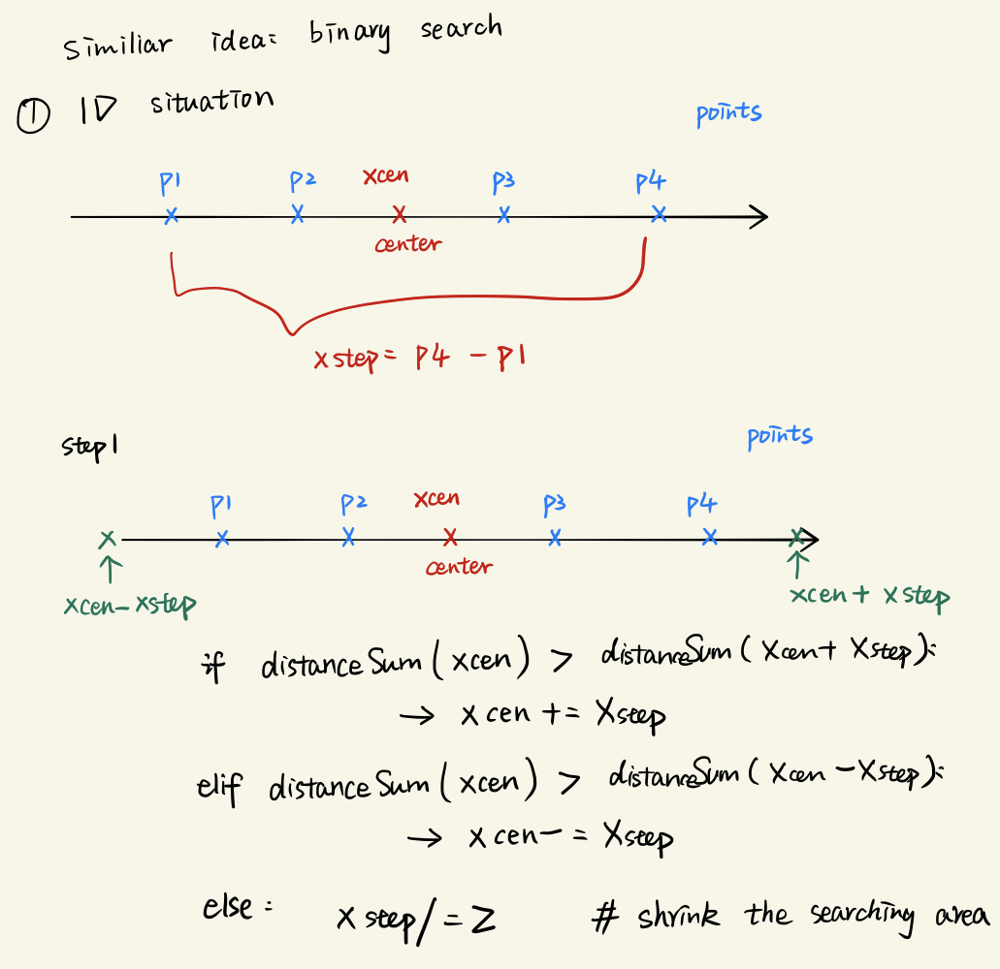 Similiar idea: binary search
① 1D situation
points
P1 P2 xcen P3 P4
center
xstep = P4 - P1
step1
points
P1 P2 xcen P3 P4
center
xcen - xstep
xcen + xstep
if distanceSum(xcen) > distanceSum(xcen + Xstep):
→ xcen += Xstep
elif distanceSum(xcen) > distanceSum(xcen - Xstep):
→ xcen -= Xstep
else: xstep /= 2 # shrink the searching area